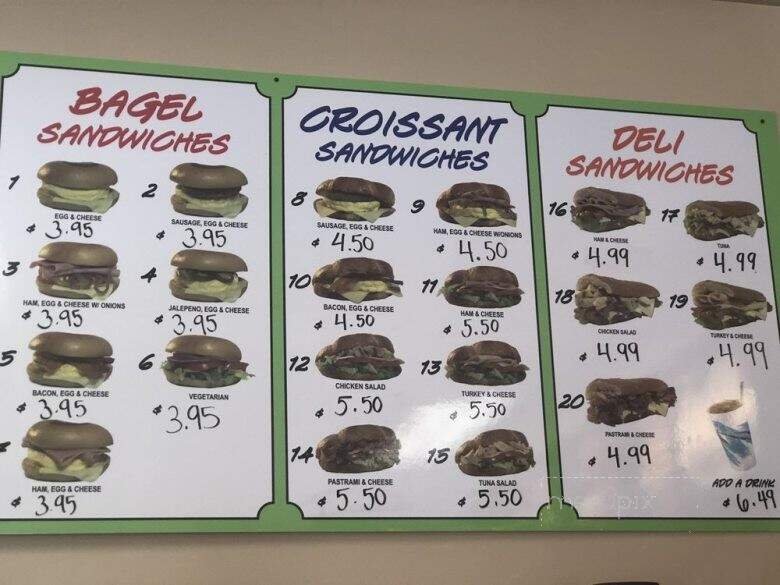 BAGEL
SANDWICHES
1
EGG & CHEESE
$ 3.95
2
SAUSAGE, EGG & CHEESE
$ 3.95
3
HAM, EGG & CHEESE W/ ONIONS
$ 3.95
4
JALEPENO, EGG & CHEESE
$ 3.95
5
BACON, EGG & CHEESE
$ 3.95
6
VEGETARIAN
$ 3.95
HAM, EGG & CHEESE
$ 3.95
CROISSANT
SANDWICHES
8
SAUSAGE, EGG & CHEESE
$ 4.50
9
HAM, EGG & CHEESE W/ONIONS
$ 4.50
10
BACON, EGG & CHEESE
$ 4.50
11
HAM & CHEESE
$ 5.50
12
CHICKEN SALAD
$ 5.50
13
TURKEY & CHEESE
$ 5.50
14
PASTRAMI & CHEESE
$ 5.50
15
TUNA SALAD
$ 5.50
DELI
SANDWICHES
16
HAM & CHEESE
$ 4.99
17
TUNA
$ 4.99
18
CHICKEN SALAD
$ 4.99
19
TURKEY & CHEESE
$ 4.99
20
PASTRAMI & CHEESE
$ 4.99
ADD A DRINK
$ 6.49